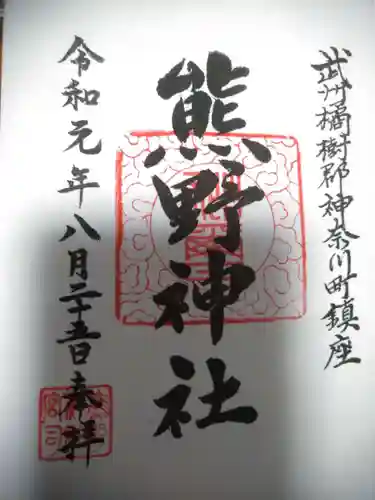 武州橘樹郡神奈川町鎮座
熊野神社
令和元年八月二十五日奉拝